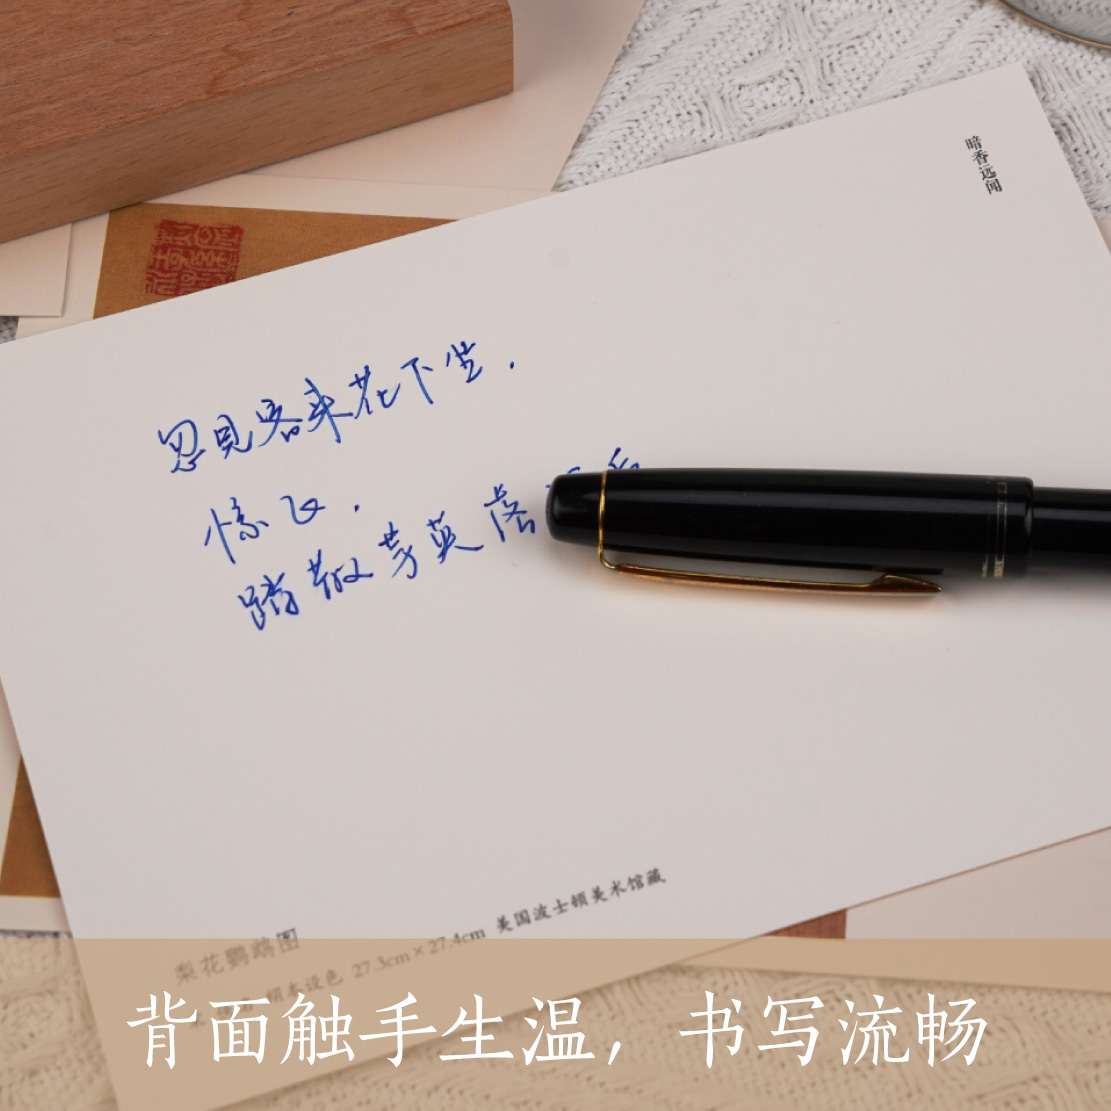 暗香远闻
忽见客来花下坐.
惊飞.
踏散芳英落
梨花鹦鹉图
绢本设色 27.3cm×27.4cm 美国波士顿美术馆藏
背面触手生温，书写流畅